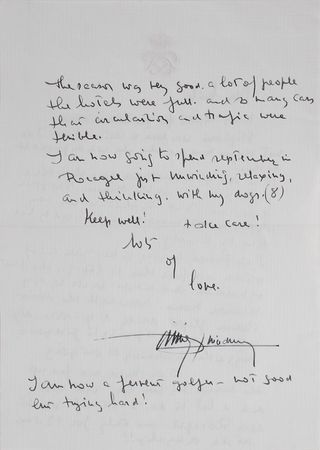 the season was very good. a lot of people
the hotels were full. and so many cars
that circulation and trafic were
terible.
I am now going to spend september in
Rocagel just unwinding, relaxing,
and thinking. with my dogs. (8)
Keep well! take care!
lots
of
love.
I am now a fervent golfer - not good
but trying hard!